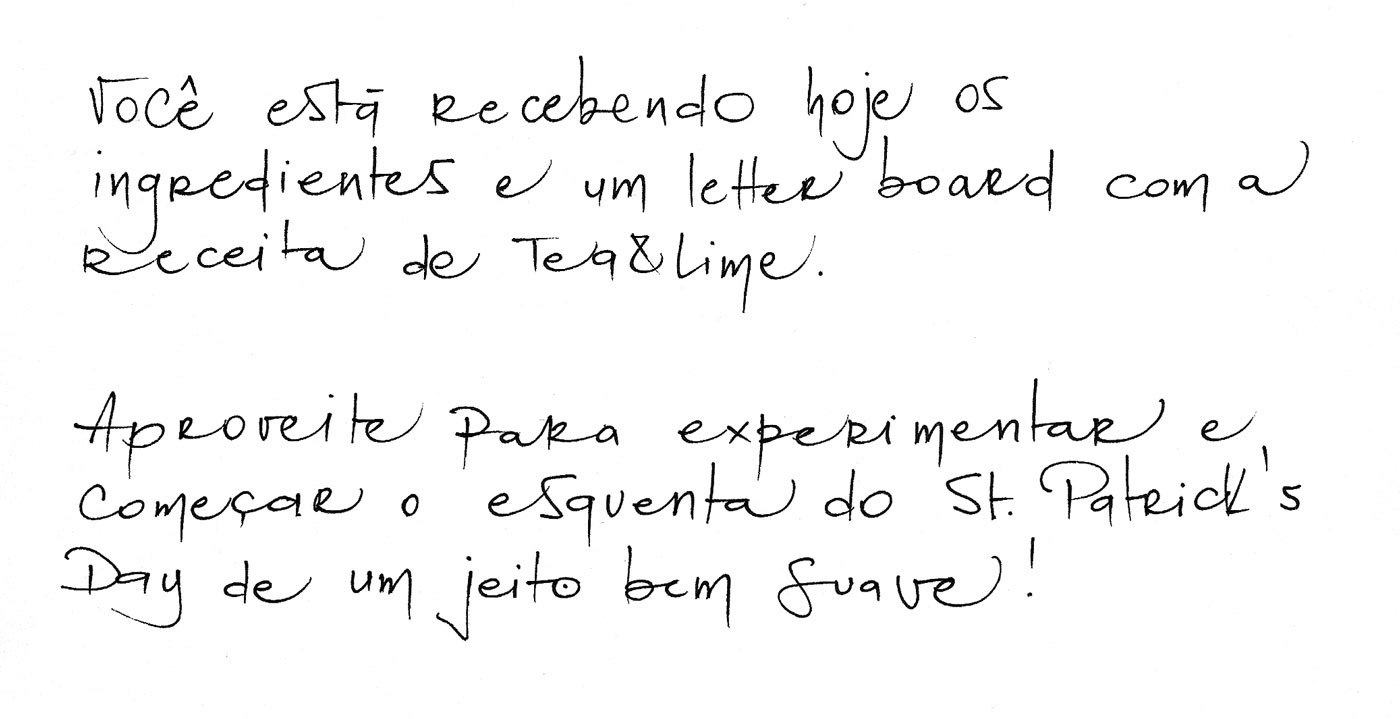 Você está recebendo hoje os
ingredientes e um letter board com a
receita de Tea&Lime.
Aproveite para experimentar e
começar o esquenta do St. Patrick's
Day de um jeito bem suave!